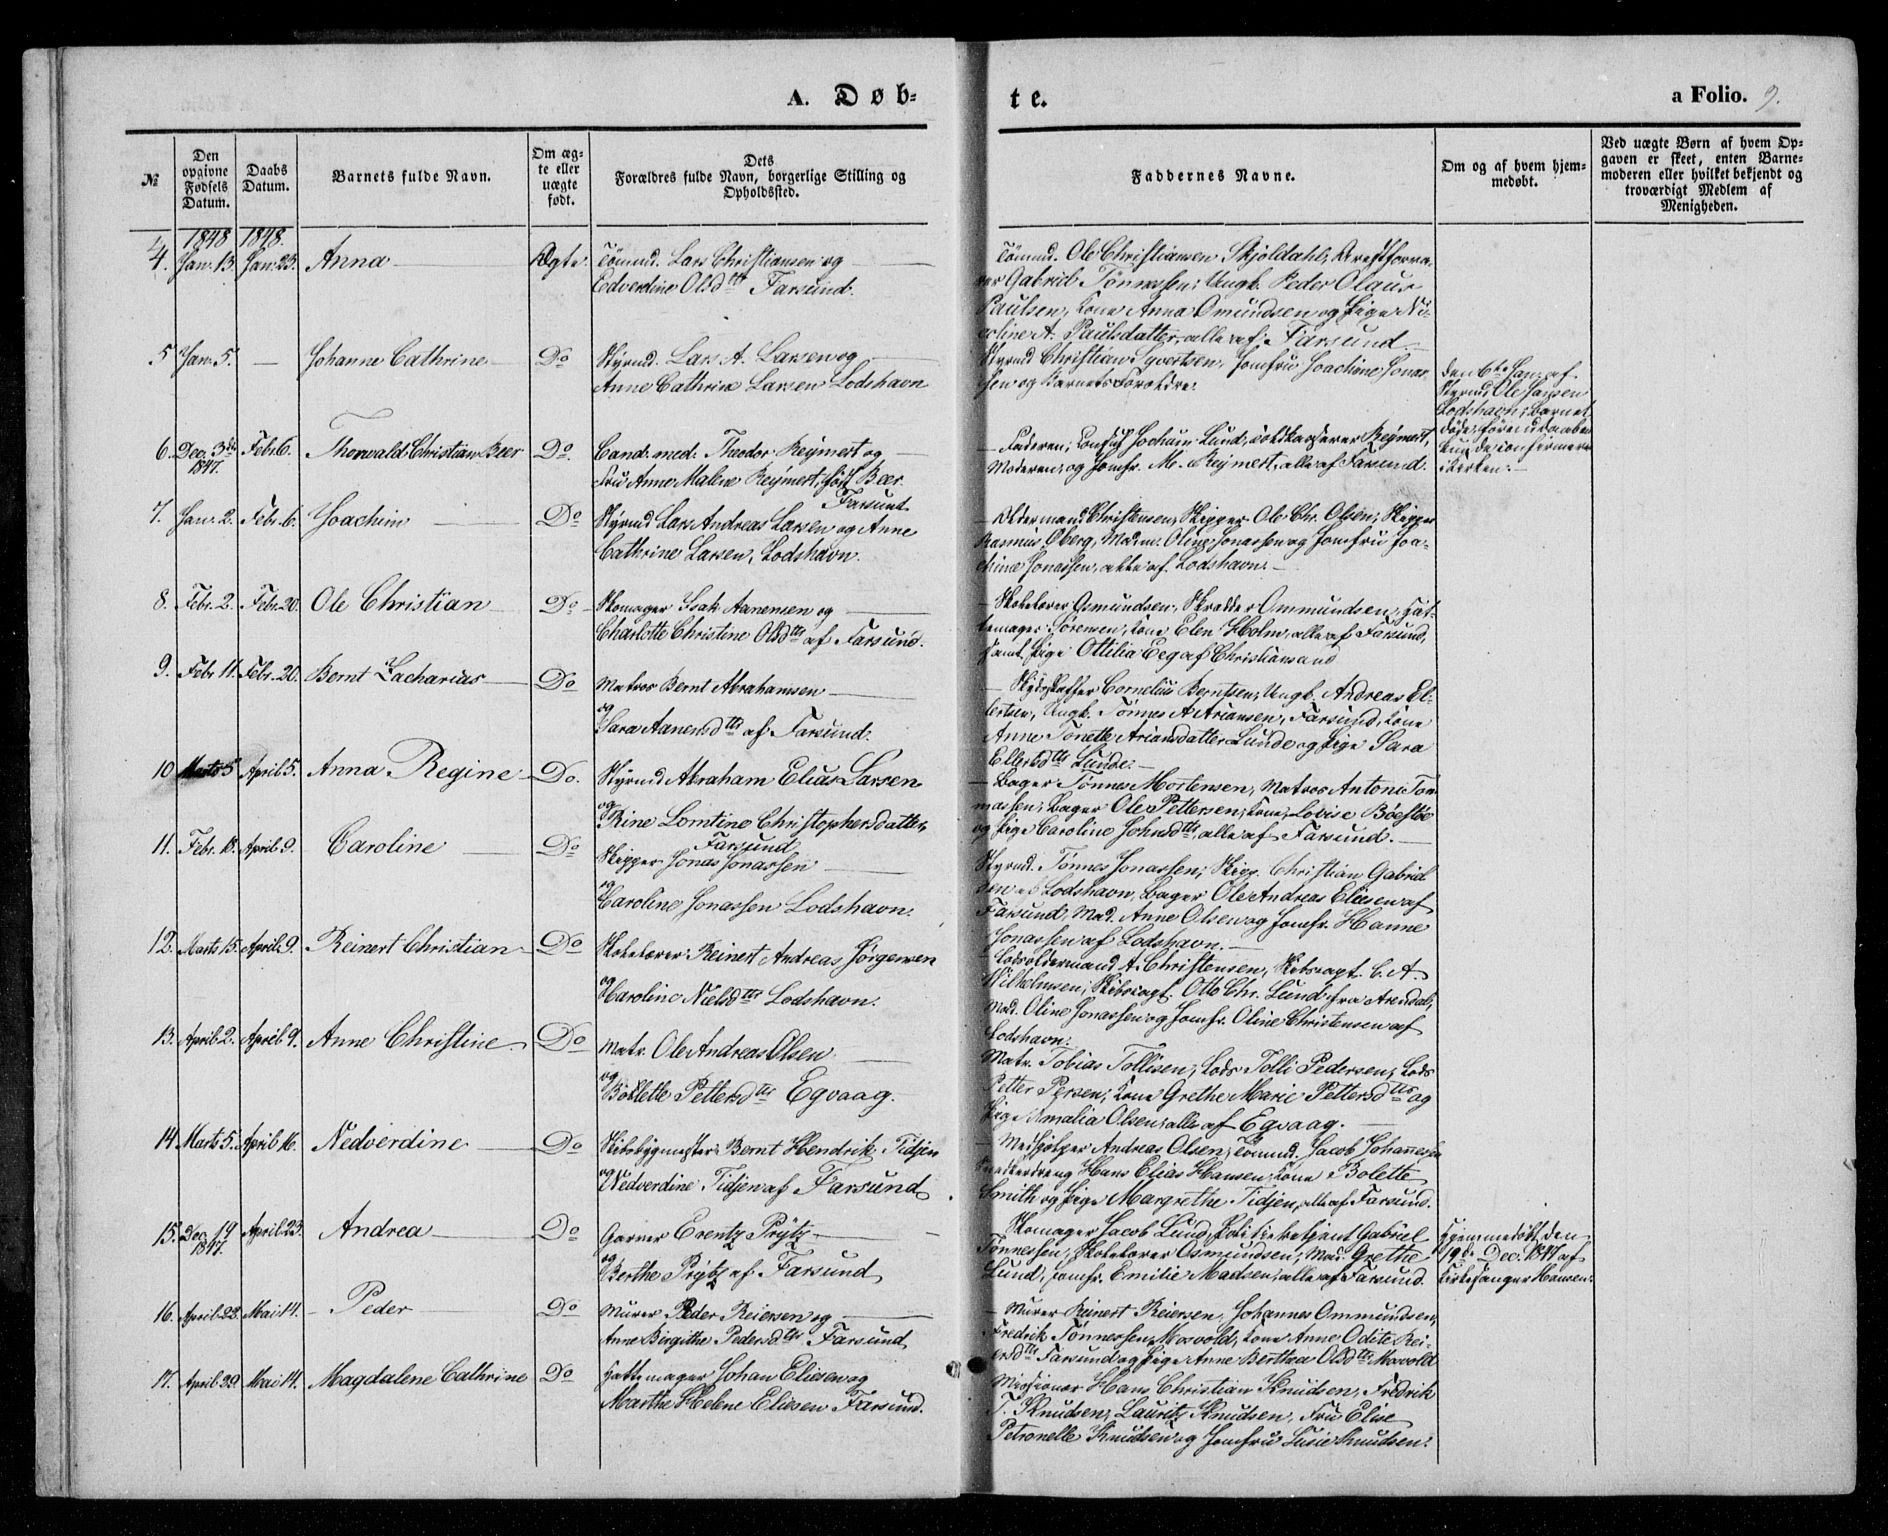 A. Døb-
te.
a Folio. 9.
№
Den opgivne Fødsels Datum.
Daabs Datum.
Barnets fulde Navn.
Om ægte eller uægte født.
Dets Forældres fulde Navn, borgerlige Stilling og Opholdssted.
Faddernes Navne.
Om og af hvem hjemmedøbt.
Ved uægte Børn af hvem Opgaven er skeet, enten Barnemoderen eller hvilket bekjendt og troværdigt Medlem af Menigheden.
1848 1848.
4. Jan. 13. Jan. 23. Anna Ægte. Tømmd. Lars Christiansen og
Edverdine Olsdtr Farsund.
Tømmd. Ole Christiansen Skjoldahl, Arestforva-
rer Gabriel Tønnessen; Ungk. Peder Olaus
Paulsen, Kone Anna Omundsen og Pige Ni-
coline A. Paulsdatter, alle af Farsund.
5 Jan. 5. — Johanne Cathrine Do Styrmd. Lars A. Larsen og
Anne Cathrine Larsen Lodshavn
Styrmd Christian Syvertsen, Jomfru Joachine Jonas-
sen og Barnets Forældre.
den 6te Jan. af
Styrmd. Ole Hansen
Lodshavn; Barnet
døde, førend Daaben
kunde confirmeres
i Kirken.
6. Dec. 3die 1847. Febr. 6. Thorvald Christian Beer Do. Cand. med. Theodor Reymert og
Fru Anne Malene Reymert, født Beer.
Farsund
Faderen, Jochum Lund, Toldkasserer Reymert,
Moderen, og Jomfr. M. Reymert, alle af Farsund.
7. Jan. 2. Febr. 6. Joachim Do Styrmd Lars Andreas Larsen og Anne
Cathrine Larsen, Lodshavn.
Oldermand Christensen, Skipper Ole Chr. Olsen, Skipper
Rasmus Øberg, Madm. Oline Jonassen og Jomfru Joa-
chine Jonassen, alle af Lodshavn.
8. Febr. 2. Febr. 20. Ole Christian Do Skomager Isak Aanensen og
Charlotte Christine Olsdtr af Farsund.
Skolelærer Osmundsen, Skrædder Ommundsen, Hat-
temager Sørensen, Kone Elen Holm, alle af Farsund,
samt Pige Ottilia Eeg af Christiansand
9. Febr. 11. Febr. 20. Bernt Zacharias Do Matros Bernt Abrahamsen
og
Sara Aanensdtr af Farsund.
Skydskaffer Cornelius Berntsen, Ungk. Andreas El-
lertsen, Ungk. Tønnes A Ariansen, Farsund, Kone
Anne Tonette Ariansdatter Lunde og Pige Sara
Ellertsdtr Lunde.
10 Marts 5 April 5. Anna Regine Do. Styrmd Abraham Elias Larsen
og
Trine Lomtine Christophersdatter
Farsund
Bager Tønnes Mortensen, Matros Antoni Tøn-
nassen, Bager Ole Pettersen, Kone Lovise Bøestøe
og Pige Caroline Johnsdtr, alle af Farsund.
11. Febr. 18. April 9. Caroline Do Skipper Jonas Jonassen
og
Caroline Jonassen Lodshavn.
Styrmd. Tønnes Jonassen, Skipp. Christian Gabriel
sen af Lodshavn, Bager Ole Andreas Eliesen af
Farsund, Mad. Anne Olsen og Jomfr. Hanne
Jonassen af Lodshavn.
12. Marts 15. April 9. Reinert Christian Do Skolelærer Reinert Andreas Jørgensen
og
Karoline Nielsdtr Lodshavn.
Lodsoldermand A. Christensen, Skibscapt. C. A.
Wilhelmsen, Skibscapt. Otto Chr. Lund fra Arendal,
Mad. Oline Jonassen og Jomfr. Oline Christensen af
Lodshavn.
13. April 2. April 9. Anne Christine Do Matr. Ole Andreas Olsen
og
Bollette Pettersdtr Egvaag.
Matr. Tobias Tollisen, Lods Tolli Pedersen, Lods
Petter Persen, Kone Grethe Marie Pettersdtr og
Pige Amalia Olsen, alle af Egvaag.
14 Marts 5. April 16. Nedverdine Do Skibsbygmester Bernt Hendrik Tidjen
og
Nedverdine Tidjen af Farsund
Medhjelper Andreas Olsen, Tømmd. Jacob Johannessen
Snedkerdreng Hans Elias Hansen, Kone Bolette
Smith og Pige Margrethe Tidjen, alle af Farsund.
15. Dec. 14 1847. April 23. Andrea Do Garver Erentz Prytz
og
Berthe Prytz af Farsund
Skomager Jacob Lund, Politibetjent Gabriel
Tønnessen, Skolelærer Osmundsen, Mad. Grethe
Lund, Jomfr. Emilie Madsen, alle af Farsund.
Hjemmedøbt den
19de Dec. 1847 af
Kirkesanger Hansen.
16. April 23. Mai 14. Peder Do Murer Peder Reiersen og
Anne Birgithe Pedersdtr Farsund
Murer Reinert Reiersen, Johannes Ommundsen,
Fredrik Tønnessen Mosvold, Kone Anne Odite Rei-
ersdtr Farsund og Pige Anne Berthea Olsdtr Mosvold
17. April 29. Mai 14. Magdalene Cathrine Do Hattemager Johan Eliesen og
Marthe Helene Eliesen Farsund.
Missionær Hans Christian Knudsen, Fredrik
T. Knudsen, Lauritz Knudsen, Fru Elise
Petronelle Knudsen og Jomfru Lusie Knudsen.